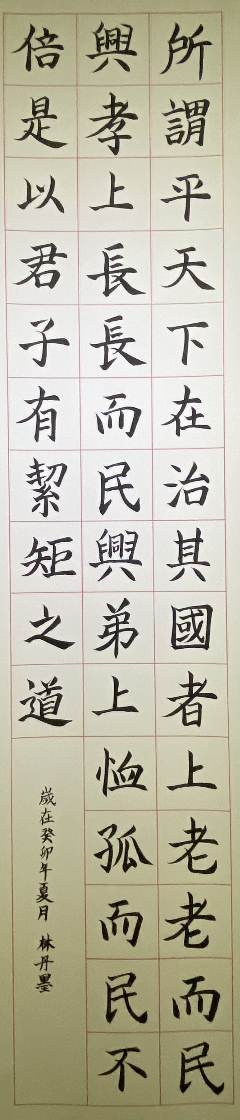 所謂平天下在治其國者上老老而民
興孝上長長而民興弟上恤孤而民不
倍是以君子有絜矩之道
歲在癸卯年夏月 林丹墨